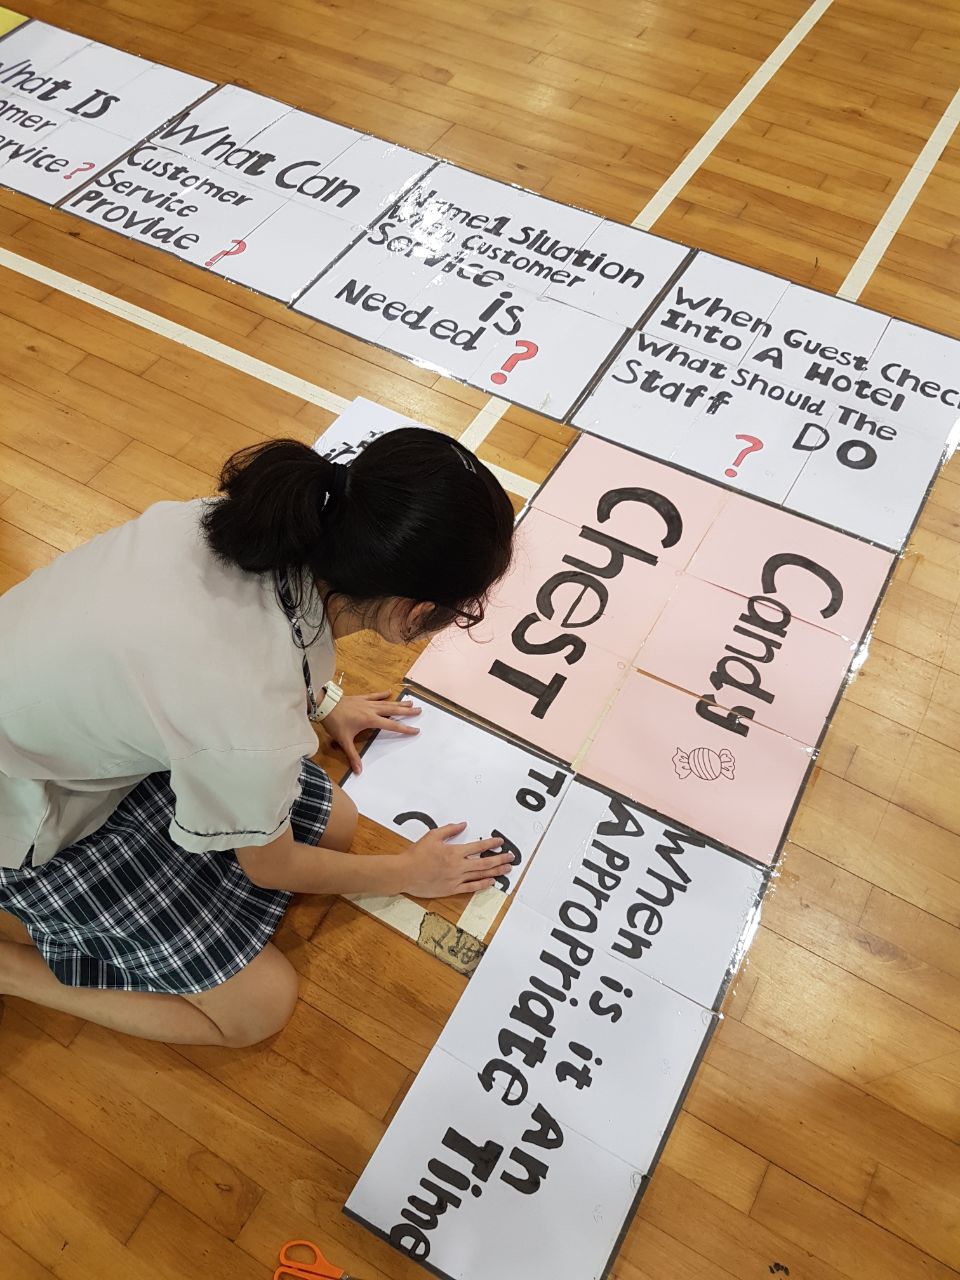 What IS
Service?
What Can
Customer
Service
Provide?
Name 1 Siuation
When Customer
Service is
Needed?
When Guest Check
Into A Hotel
What Should The
Staff DO
?
Candy
Chest
When is it An
APProPriate Time
To